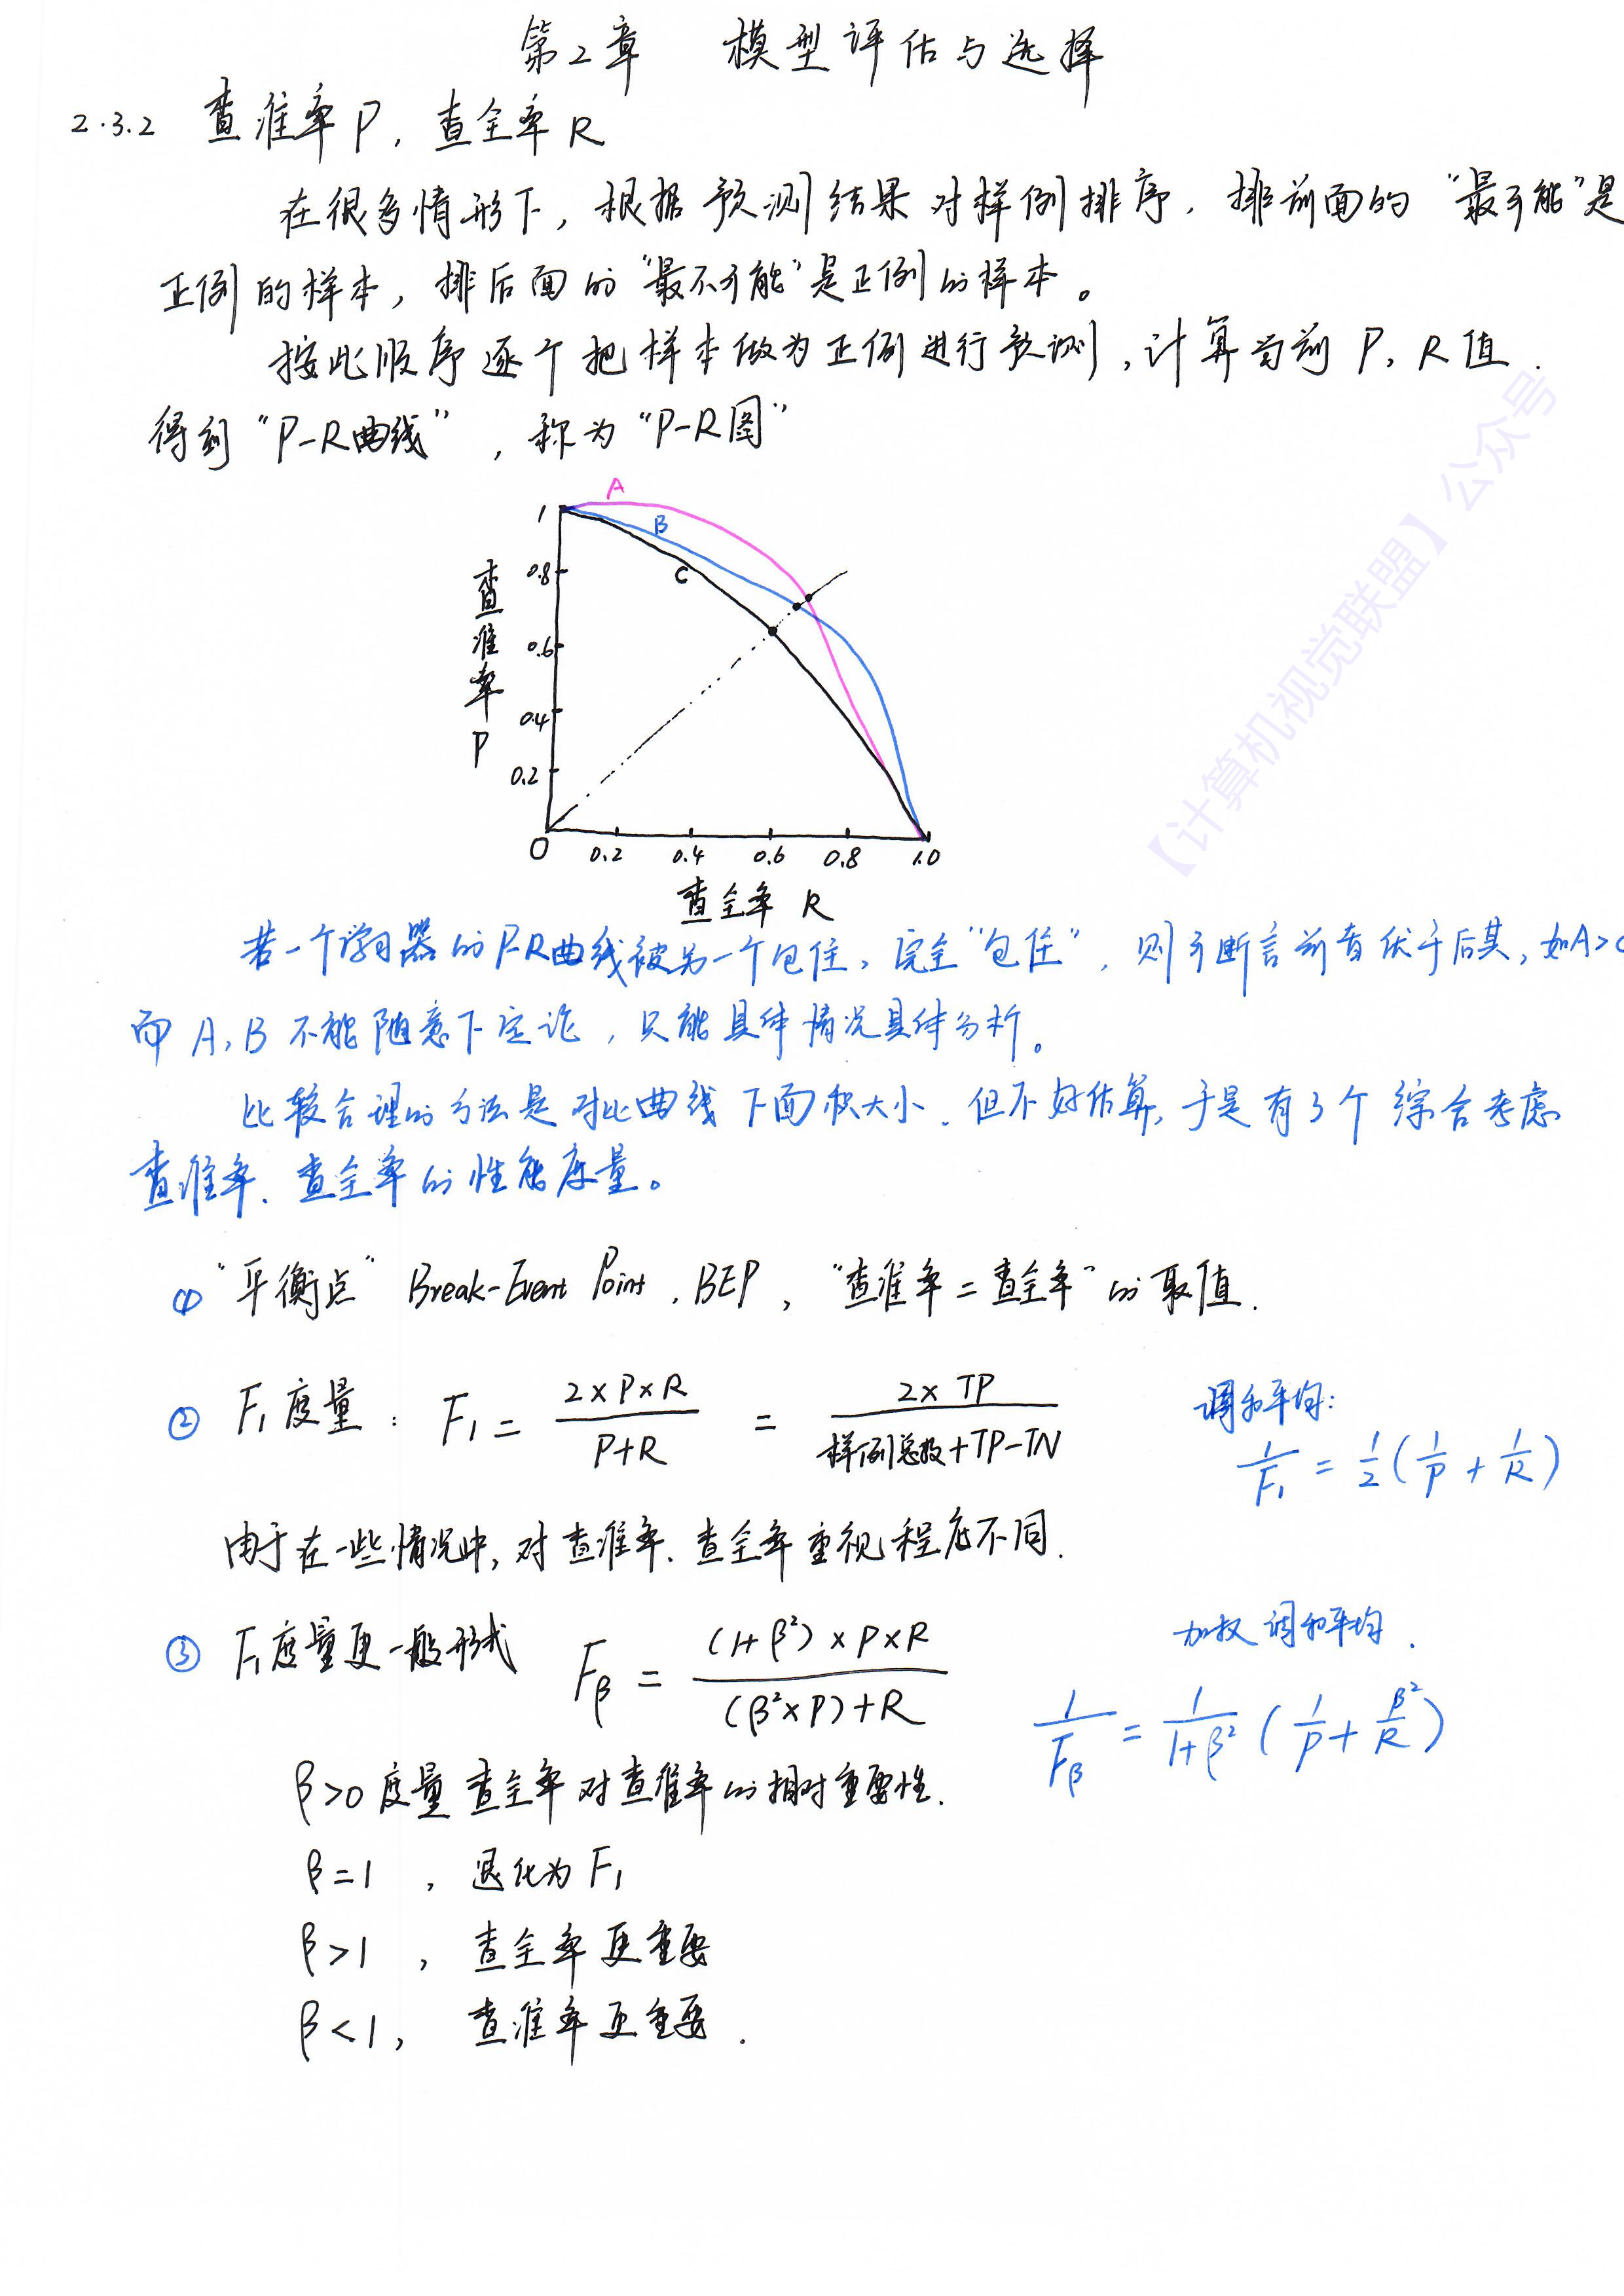 第2章 模型评估与选择
2.3.2 查准率P,查全率R
在很多情形下,根据预测结果对样例排序,排前面的“最可能”是
正例的样本,排后面的“最不可能”是正例的样本。
按此顺序逐个把样本做为正例进行预测,计算当前P,R值.
得到“P-R曲线”,称为“P-R图”
A
B
C
1
0.8
0.6
0.4
0.2
查准率P
0 0.2 0.4 0.6 0.8 1.0
查全率 R
【计算机视觉联盟】公众号
若一个学习器的P-R曲线被另一个包住,完全“包住”,则可断言前者优于后其,如A>C
而A,B不能随意下定论,只能具体情况具体分析。
比较合理的方法是对比曲线下面积大小.但不好估算,于是有3个综合考虑
查准率、查全率的性能度量。
① “平衡点” Break-Event Point, BEP, “查准率=查全率”的取值.
② F₁度量: F₁ = (2×P×R)/(P+R) = (2×TP)/(样例总数+TP-TN)
调和平均:
1/F₁ = 1/2(1/P + 1/R)
由于在一些情况中,对查准率、查全率重视程度不同.
③ F₁度量更一般形式 F_β = ((1+β²)×P×R)/((β²×P)+R)
加权调和平均.
1/F_β = 1/(1+β²) (1/P + β²/R)
β>0度量查全率对查准率的相对重要性.
β=1 , 退化为F₁
β>1 , 查全率更重要
β<1, 查准率更重要.